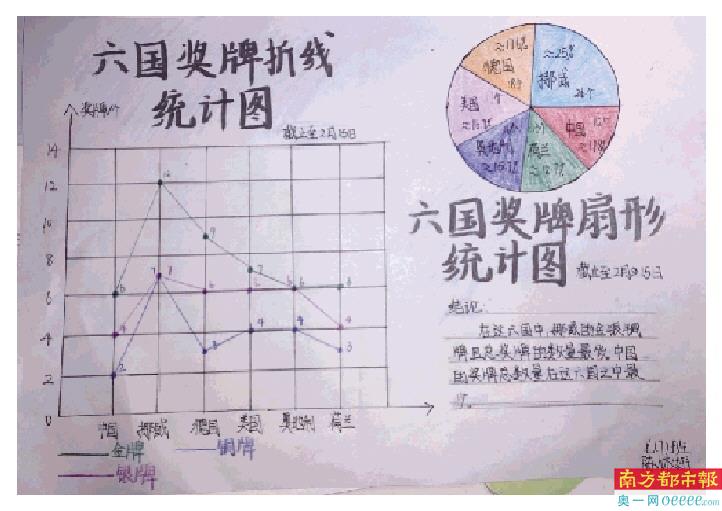 六国奖牌折线
统计图
截止至2月15日
奖牌/个
14
12
10
8
6
4
2
0
6
12
9
7
6
6
4
7
6
6
6
4
2
7
3
4
4
3
中国 挪威 德国 美国 奥地利 荷兰
金牌 铜牌
银牌
≈25%
挪威
中国
荷兰
奥地利
美国
德国
18个
六国奖牌扇形
统计图 截止至2月15日
结论:
在这六国中,挪威的金银铜
牌且总奖牌的数量最多,中国
的奖牌总数量在这六国之中最
少。
南方都市報
奥一网oeeee.com